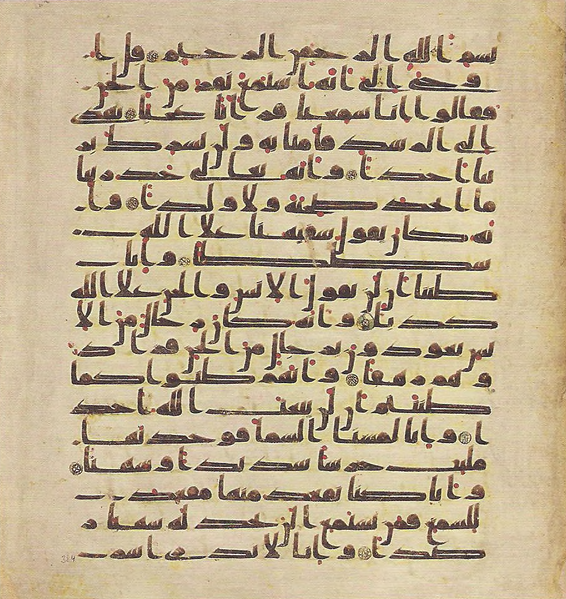 بسم الله الرحمن الرحيم قل ا
وحي الي انه استمع نفر من الجن
فقالوا انا سمعنا قرانا عجبا يهدي
الي الرشد فامنا به ولن نشرك بر
بنا احدا وانه تعلي جد ربنا
ما اتخذ صحبة ولا ولدا وا
نه كان يقول سفيهنا علي الله
شططا وانا
ظننا ان لن تقول الانس والجن علي الله
كذبا وانه كان رجال من الا
نس يعوذون برجال من الجن فزاد
وهم رهقا وانهم ظنوا كما
ظننتم ان لن يبعث الله احد
ا وانا لمسنا السما فوجدنها
ملئت حرسا شديدا وشهبا
وانا كنا نقعد منها مقعد
للسمع فمن يستمع الان يجد له شهابا ر
صدا وانا لا ندري اشر